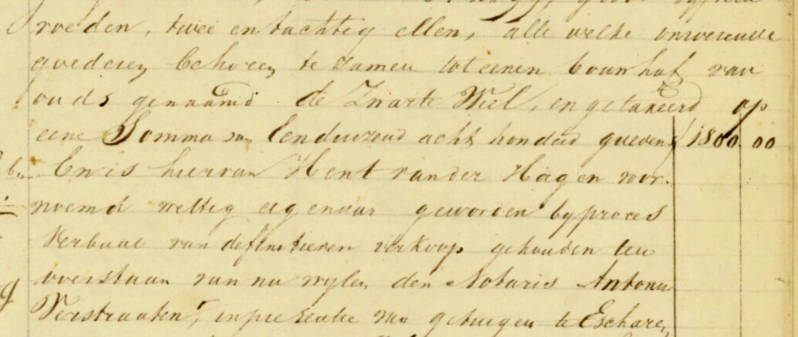 roeden, twee en tachtig ellen, alle welke onroerende
goederen behoren te zamen tot eenen bouwhof van
ouds genaamd de Zwarte Wiel, en getaxeerd op
eene Somma van Eenduizend acht honderd guldens f 1800 00
En is hiervan Hent vander Hagen voor-
noemd wettig eigenaar geworden by proces
Verbaal van definitieven verkoop gehouden ten
overstaan van nu wylen den Notaris Antonie
Verstraaten, in presentie van getuigen te Escharen,